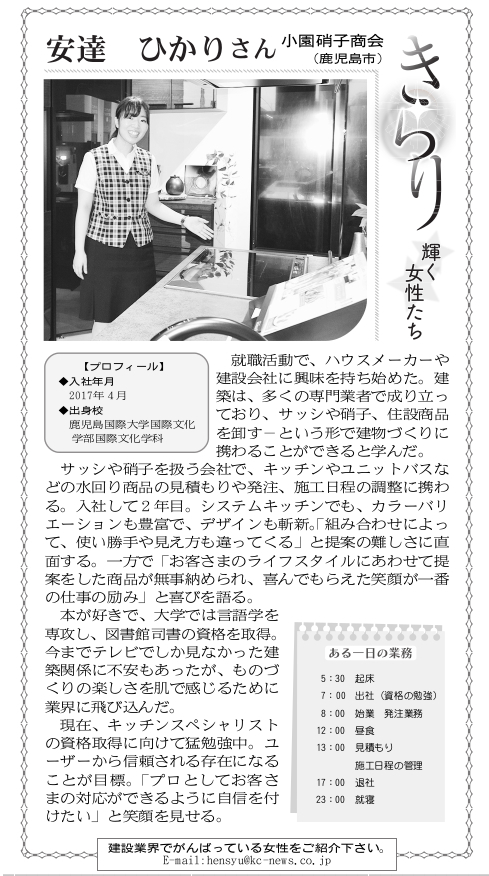 きらり
輝く
女性たち
安達　ひかりさん
小園硝子商会
（鹿児島市）
【プロフィール】
◆入社年月
2017年４月
◆出身校
鹿児島国際大学国際文化
学部国際文化学科
就職活動で、ハウスメーカーや
建設会社に興味を持ち始めた。建
築は、多くの専門業者で成り立っ
ており、サッシや硝子、住設商品
を卸す－という形で建物づくりに
携わることができると学んだ。
サッシや硝子を扱う会社で、キッチンやユニットバスな
どの水回り商品の見積もりや発注、施工日程の調整に携わ
る。入社して２年目。システムキッチンでも、カラーバリ
エーションも豊富で、デザインも斬新。「組み合わせによっ
て、使い勝手や見え方も違ってくる」と提案の難しさに直
面する。一方で「お客さまのライフスタイルにあわせて提
案をした商品が無事納められ、喜んでもらえた笑顔が一番
の仕事の励み」と喜びを語る。
本が好きで、大学では言語学を
専攻し、図書館司書の資格を取得。
今までテレビでしか見なかった建
築関係に不安もあったが、ものづ
くりの楽しさを肌で感じるために
業界に飛び込んだ。
現在、キッチンスペシャリスト
の資格取得に向けて猛勉強中。ユ
ーザーから信頼される存在になる
ことが目標。「プロとしてお客さ
まの対応ができるように自信を付
けたい」と笑顔を見せる。
ある一日の業務
5：30　起床
7：00　出社（資格の勉強）
8：00　始業　発注業務
12：00　昼食
13：00　見積もり
施工日程の管理
17：00　退社
23：00　就寝
建設業界でがんばっている女性をご紹介下さい。
E-mail:hensyu@kc-news.co.jp